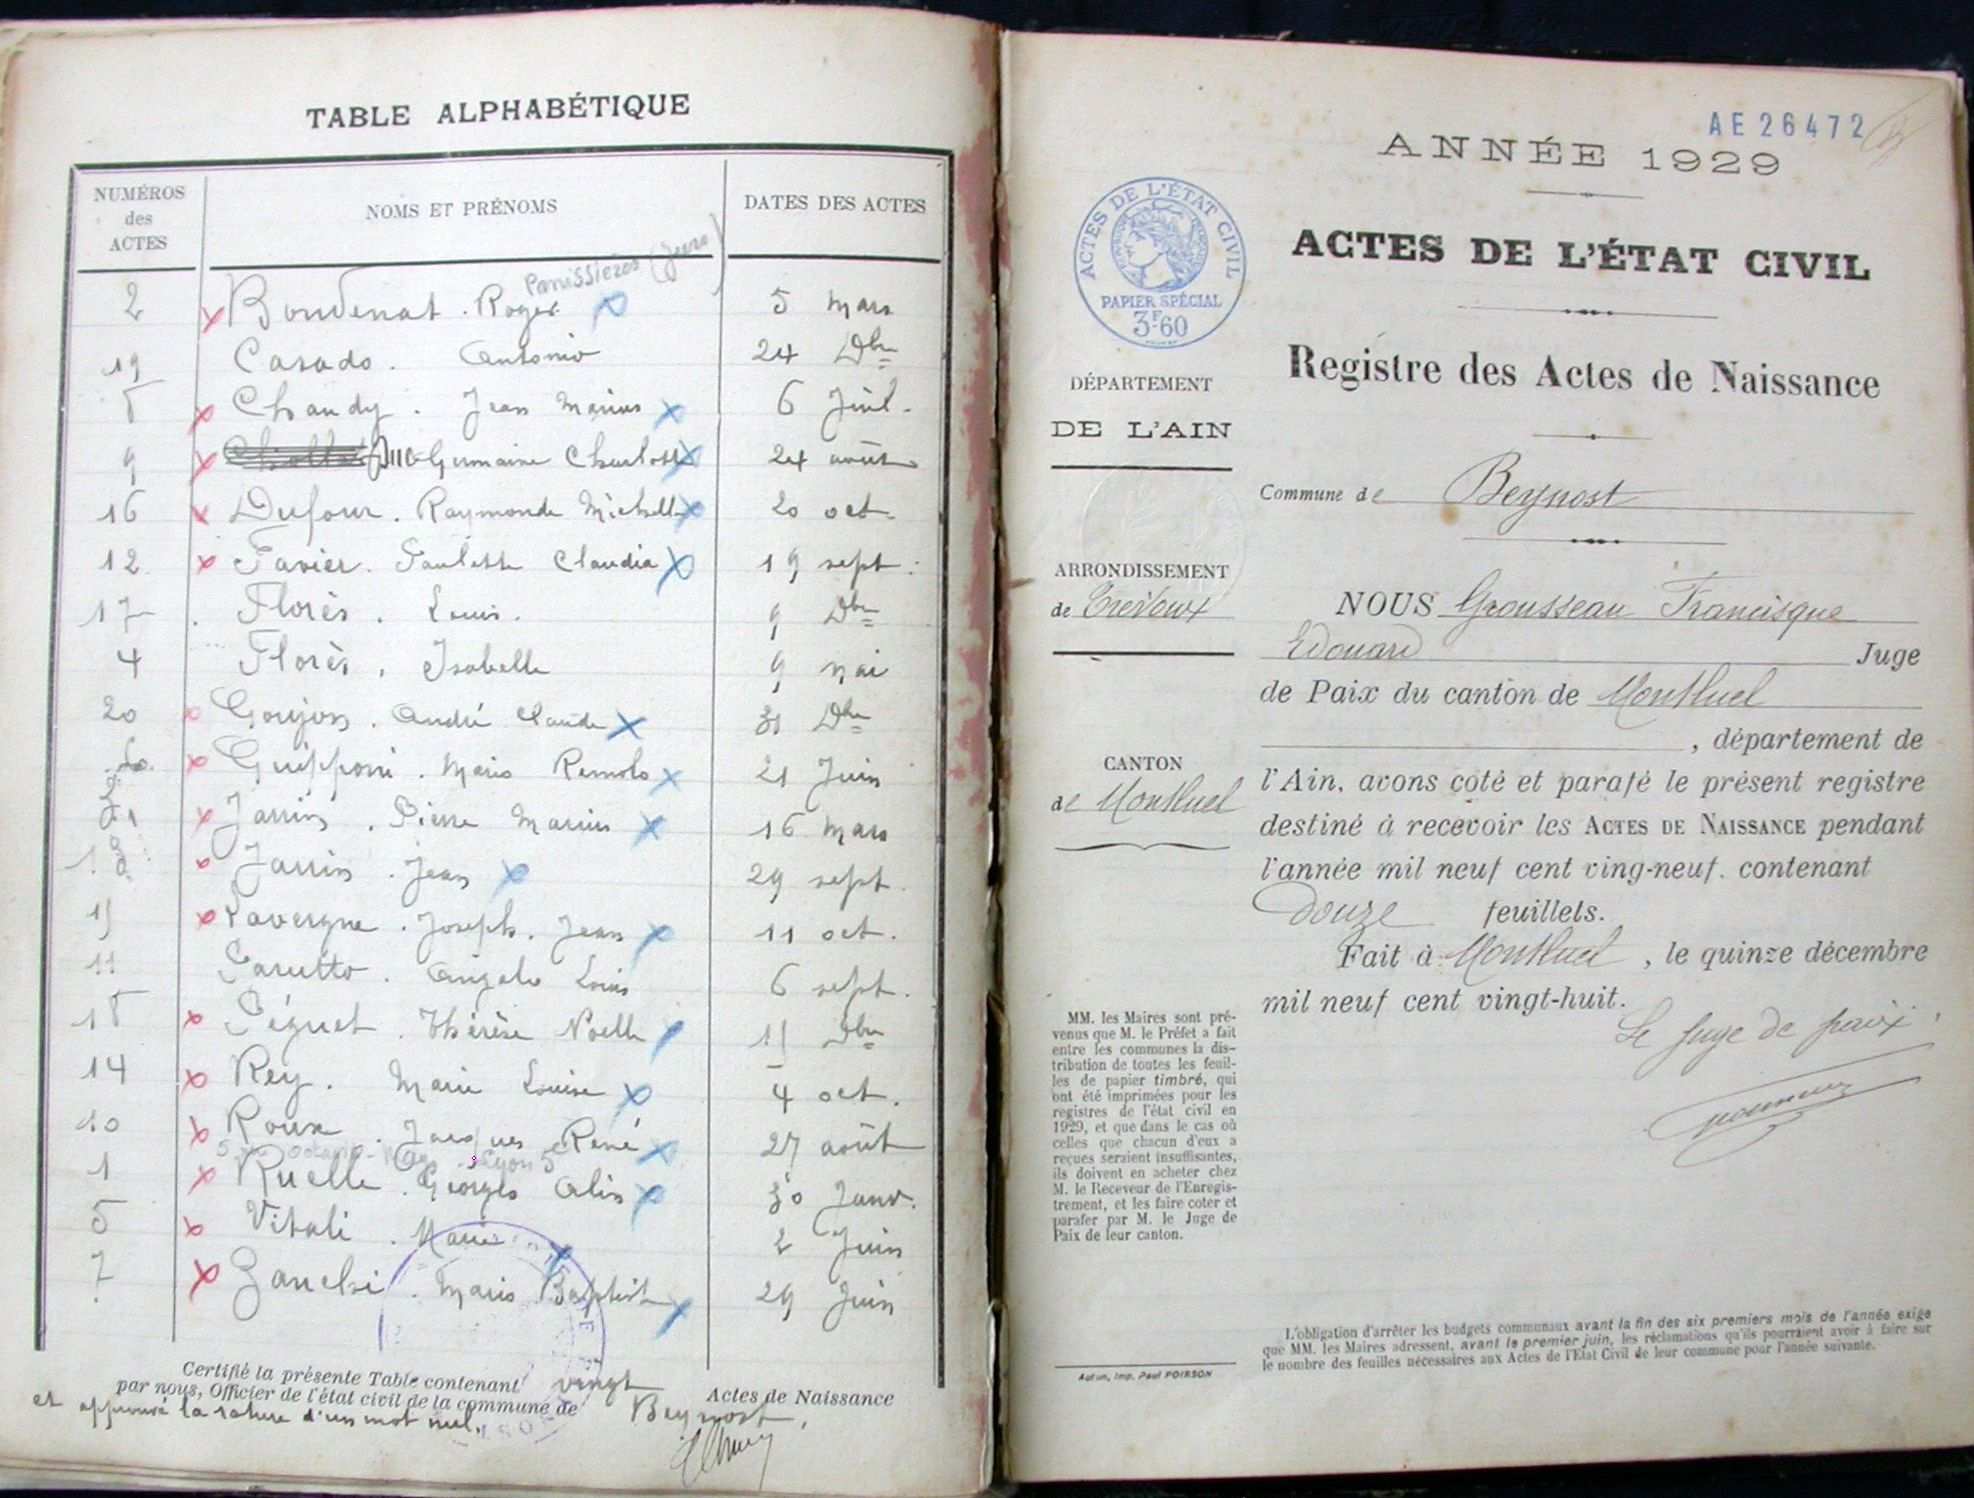 TABLE ALPHABÉTIQUE
NUMÉROS des ACTES
NOMS ET PRÉNOMS
DATES DES ACTES
Panissières (Jura)
2 Bondenat. Roger 5 mars
19 Casado. Antonio 24 Dbre
8 Chaudy. Jean Marius 6 Juil.
9 Germaine Charlotte 24 août
16 Dufour. Raymonde Michelle 20 oct.
12 Favier. Paulette Claudia 19 sept.
17 Florès. Louis. 9 Dbre
4 Florès. Isabelle 9 mai
20 Goujon. André Claude 31 Dbre
Guipponi. Mario Remolo 21 Juin
Jarrin. Pierre Marius 16 mars
Jarrin. Jean 29 sept.
15 Lavergne. Joseph. Jean 11 oct.
11 Parutto. Angelo Louis 6 sept.
18 Péguet. Thérèse Noelle 15 Dbre
14 Rey. Marie Louise 4 oct.
10 Roux. Jacques René 27 août
1 Ruelle. Georges Alix 30 Janv.
5 Vitali. Marie 2 Juin
7 Zanchi. Mario Baptist 29 Juin
Certifié la présente Table contenant vingt Actes de Naissance
par nous, Officier de l'état civil de la commune de Beynost,
et approuvé la rature d'un mot nul.
AE 26472
ANNÉE 1929
ACTES DE L'ÉTAT CIVIL
PAPIER SPÉCIAL
3F.60
ACTES DE L'ÉTAT CIVIL
Registre des Actes de Naissance
DÉPARTEMENT
DE L'AIN
Commune de Beynost
ARRONDISSEMENT
de Trévoux
CANTON
de Montluel
NOUS Grousseau Francisque
Edouard Juge
de Paix du canton de Montluel
, département de
l'Ain, avons coté et parafé le présent registre
destiné à recevoir les ACTES DE NAISSANCE pendant
l'année mil neuf cent ving-neuf, contenant
Douze feuillets.
Fait à Montluel, le quinze décembre
mil neuf cent vingt-huit.
Le Juge de paix,
MM. les Maires sont pré-
venus que M. le Préfet a fait
entre les communes la dis-
tribution de toutes les feuil-
les de papier timbré, qui
ont été imprimées pour les
registres de l'état civil en
1929, et que dans le cas où
celles que chacun d'eux a
reçues seraient insuffisantes,
ils doivent en acheter chez
M. le Receveur de l'Enregis-
trement, et les faire coter et
parafer par M. le Juge de
Paix de leur canton.
Autun, Imp. Paul POIRSON
L'obligation d'arrêter les budgets communaux avant la fin des six premiers mois de l'année exige
que MM. les Maires adressent, avant le premier juin, les réclamations qu'ils pourraient avoir à faire sur
le nombre des feuilles nécessaires aux Actes de l'Etat Civil de leur commune pour l'année suivante.